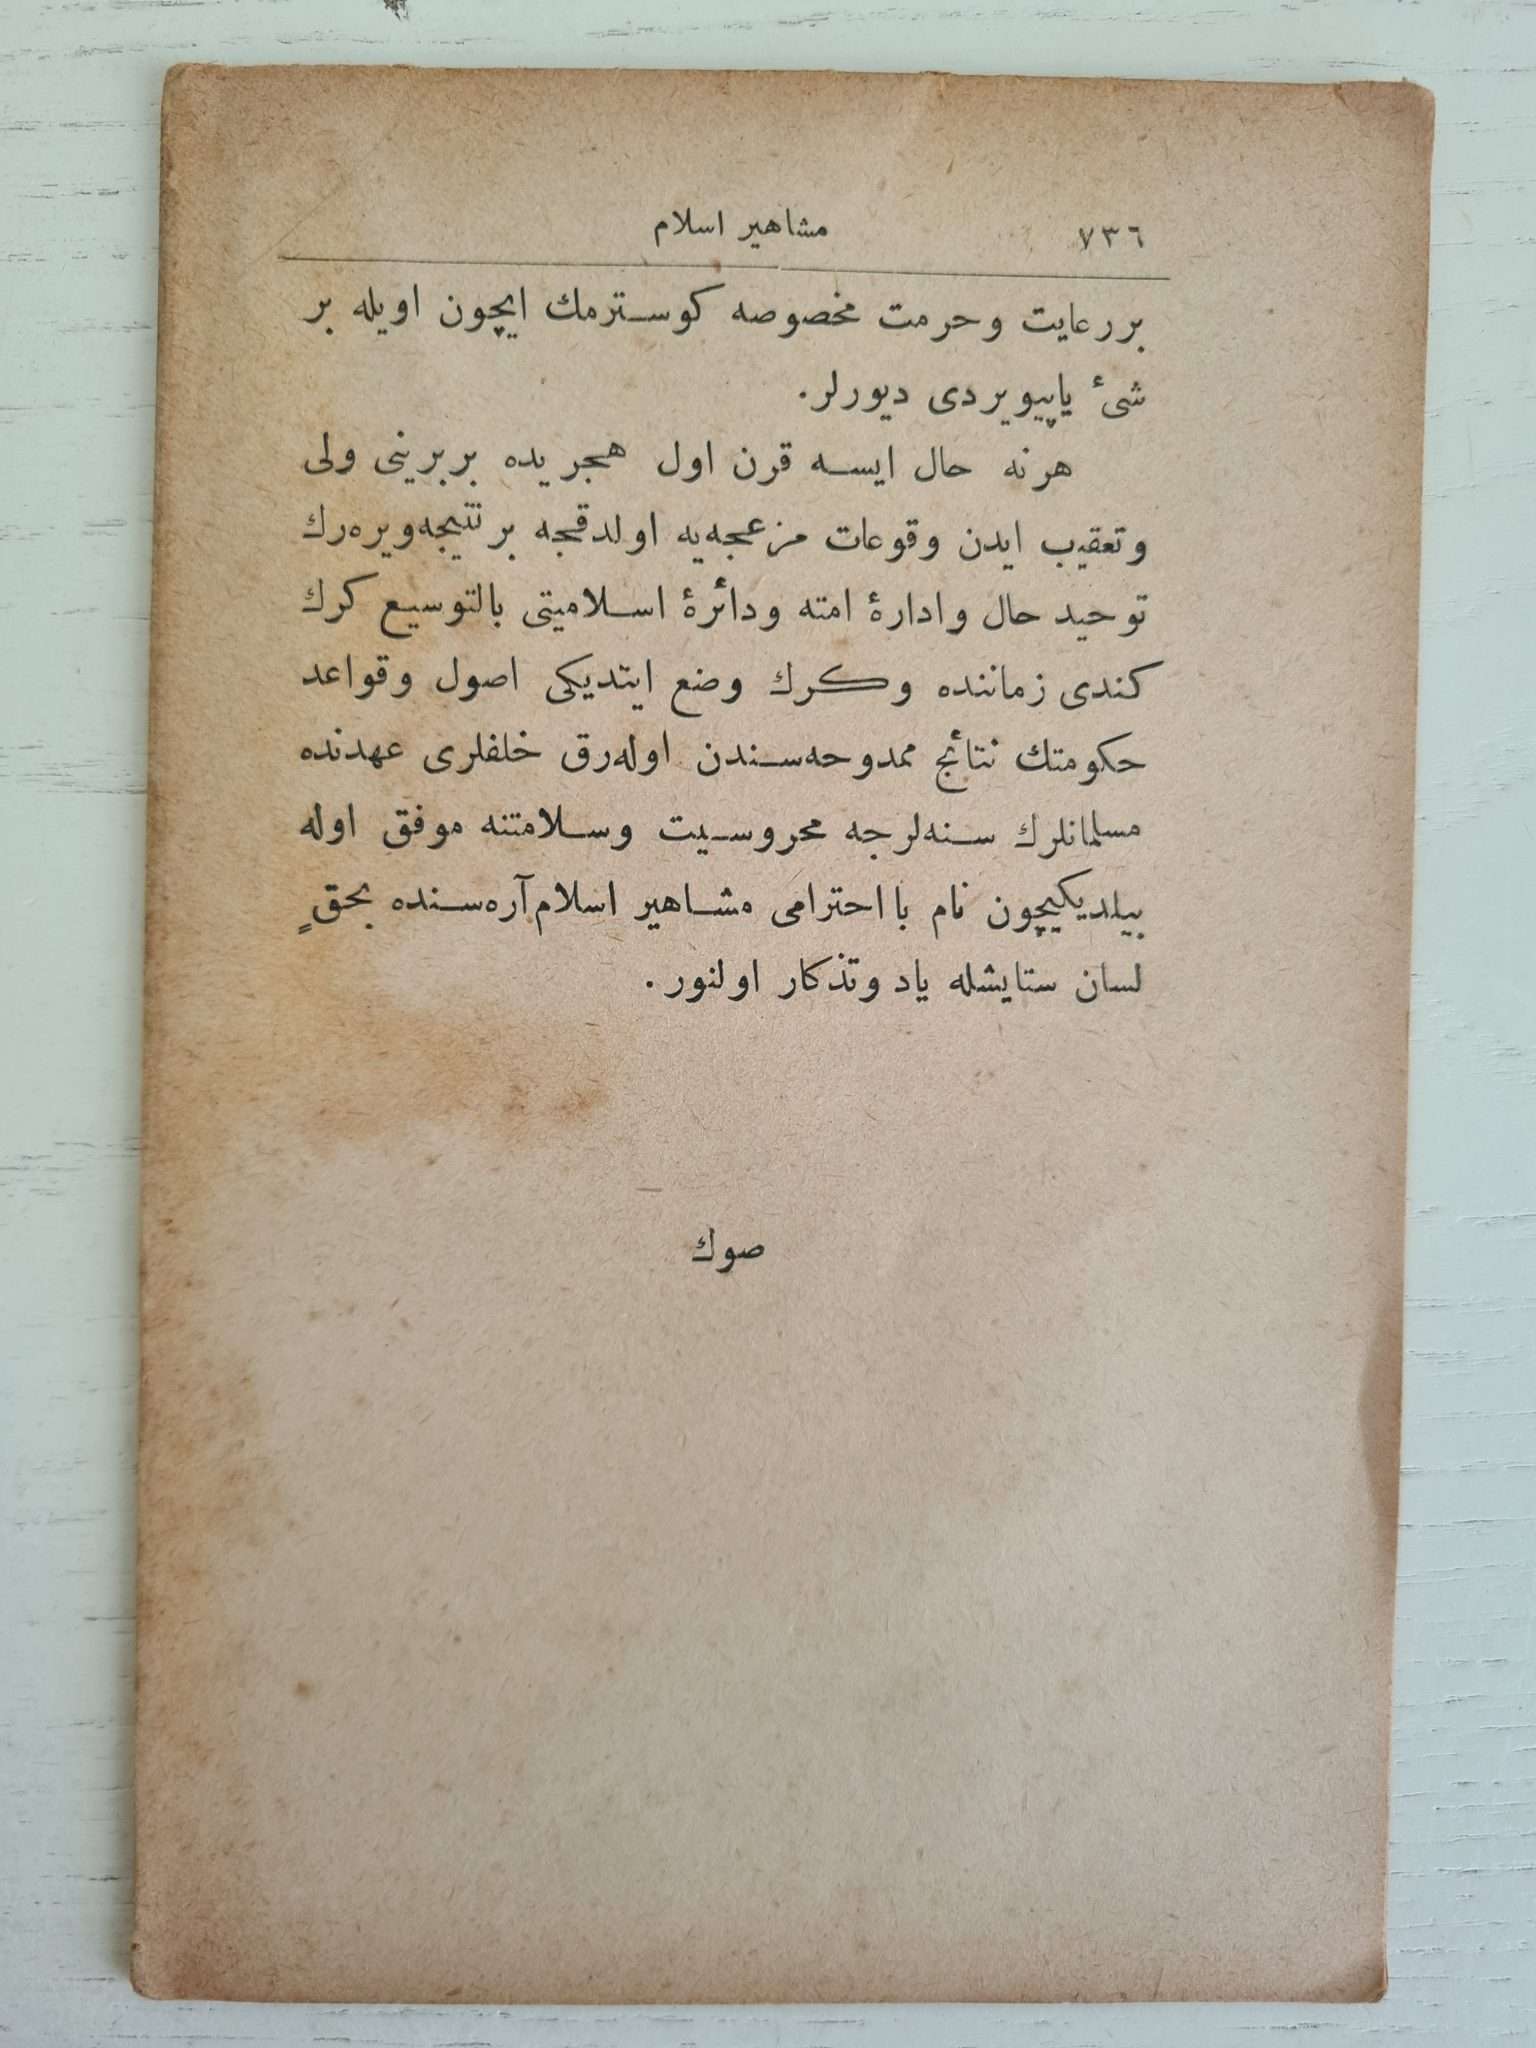 ٧٣٦ مشاهير اسلام
بر رعايت وحرمت مخصوصه كوسترمك ايچون اويله بر
شئ ياپيويردى ديورلر.
هرنه حال ايسه قرن اول هجريده بربرينى ولى
وتعقيب ايدن وقوعات مزعجه‌يه اولدقجه بر نتيجه‌ويره‌رك
توحيد حال وادارۀ امته ودائرۀ اسلاميتى بالتوسيع كرك
كندى زماننده وكرك وضع ايتديكى اصول وقواعد
حكومتك نتائج ممدوحه‌سندن اوله‌رق خلفلرى عهدنده
مسلمانلرك سنه‌لرجه محروسيت وسلامتنه موفق اوله
بيلديكيچون نام با احترامى مشاهير اسلام آره‌سنده بحقٍ
لسان ستايشله ياد وتذكار اولنور.
صوك